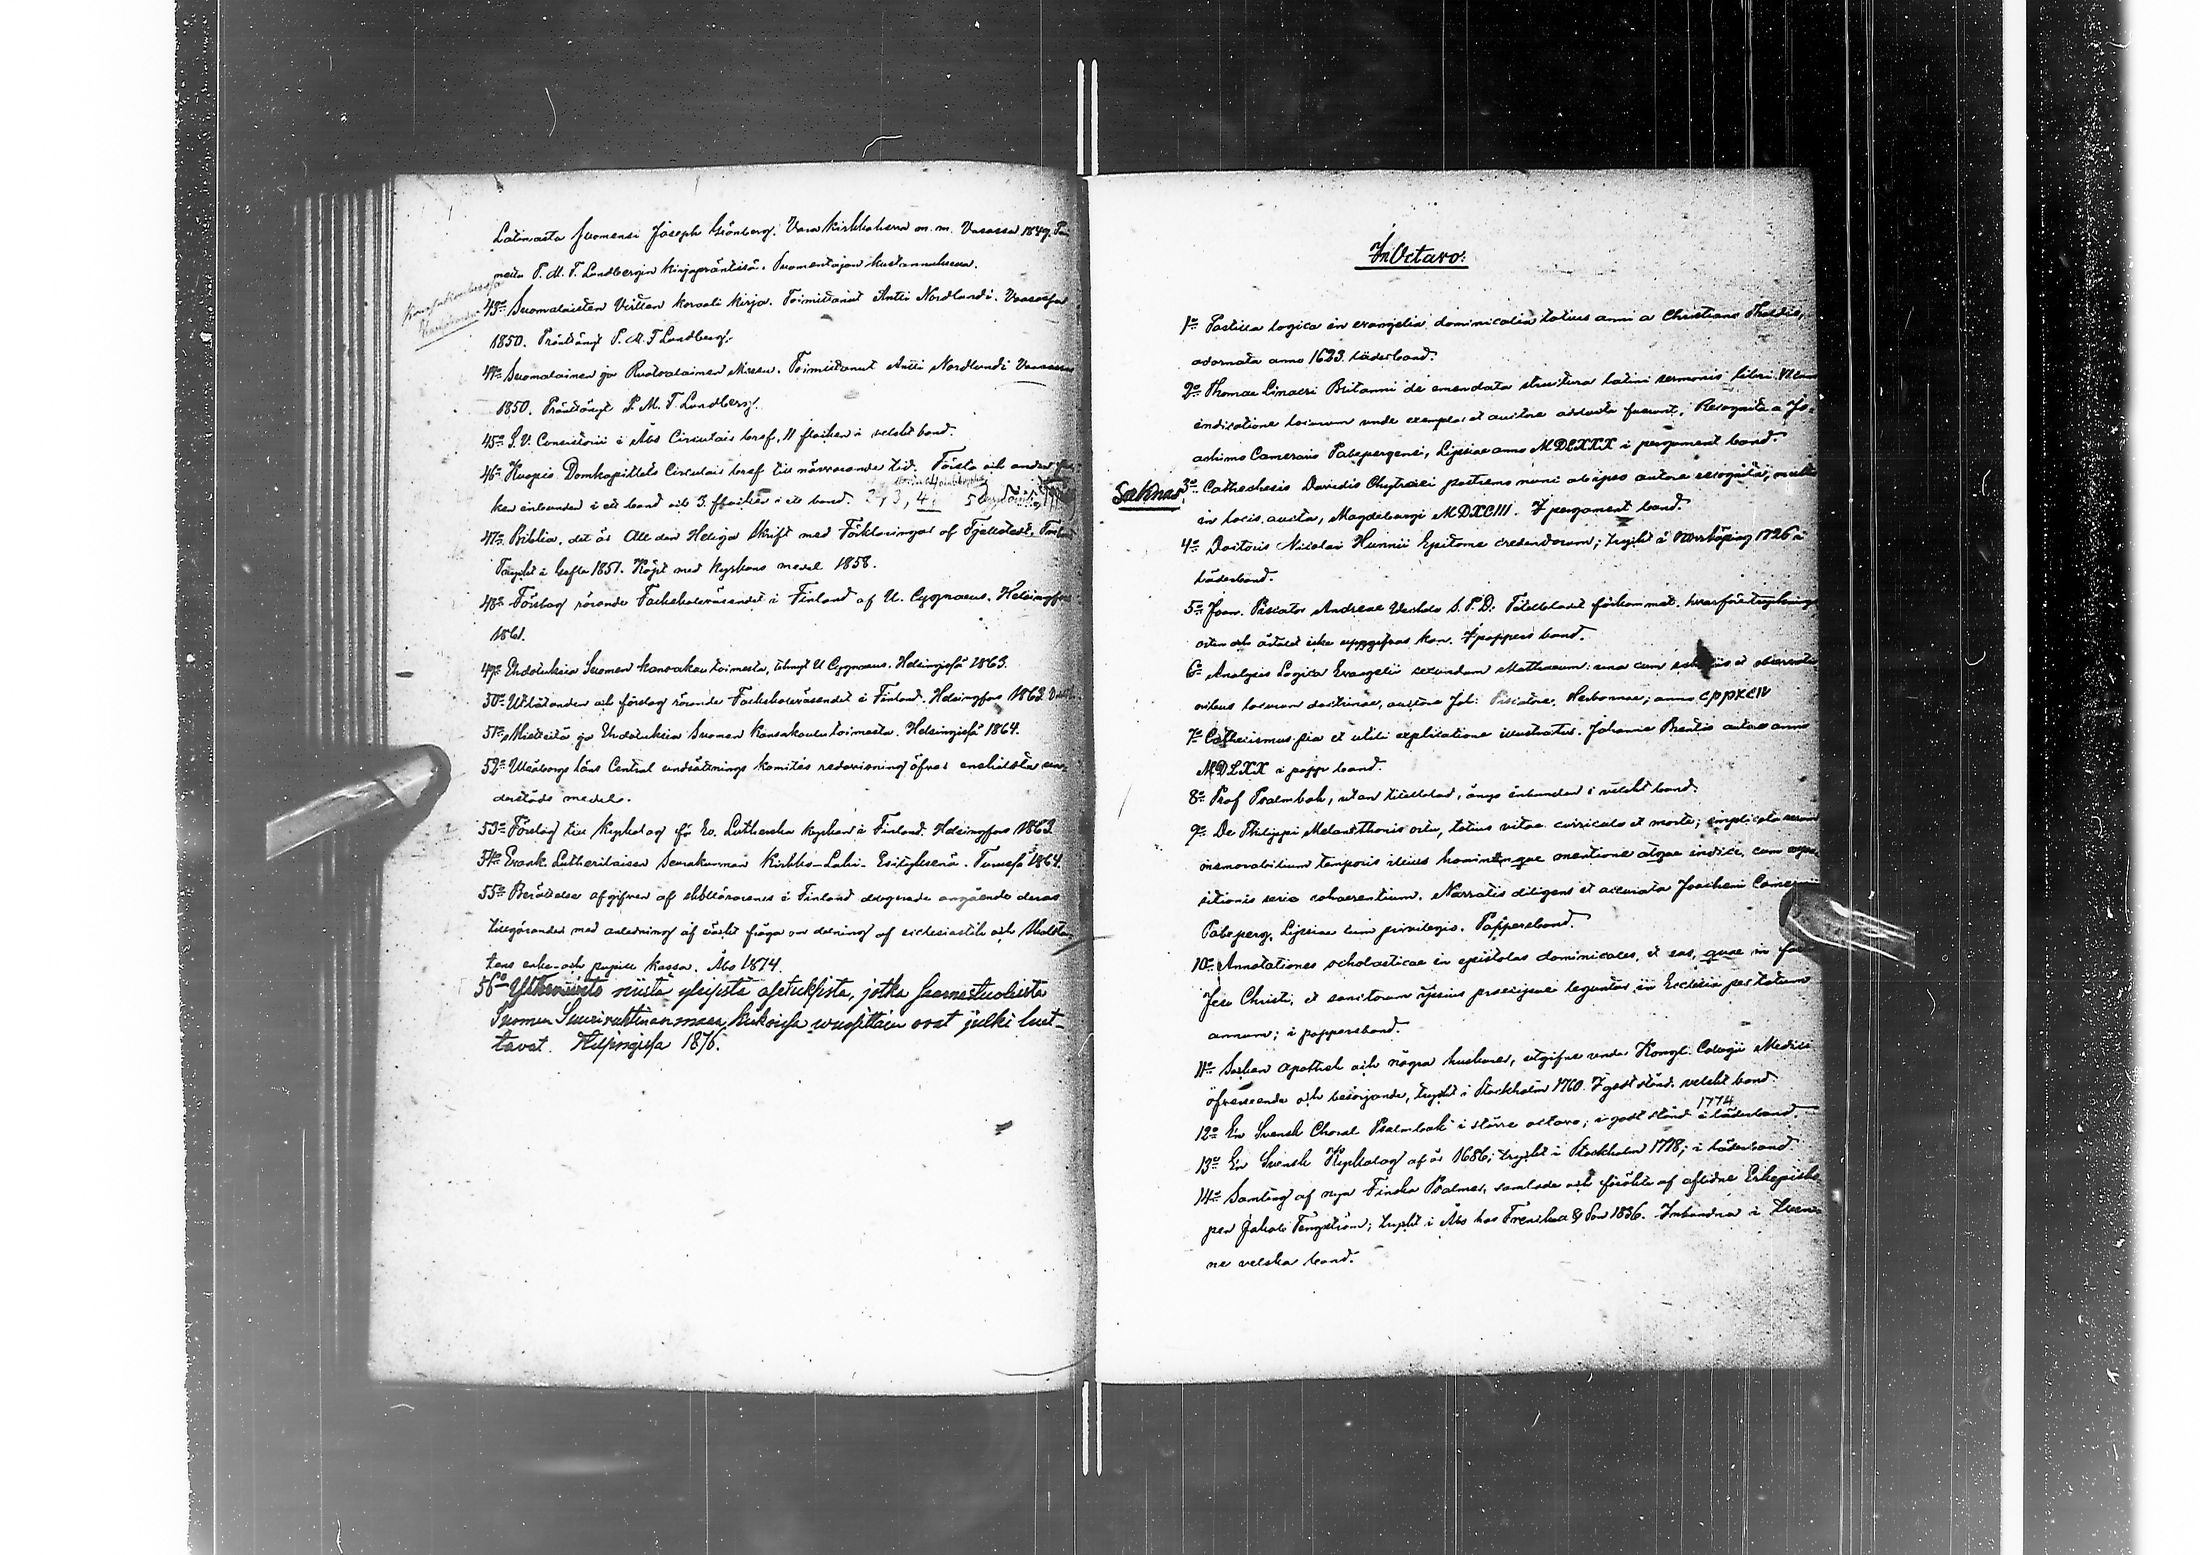 Latinasta Suomensi Joseph Grönberg. Vara Kirkkoherra m. m. Vasassa 1849. Prä
nätty P. M. T. Lundbergin kirjapräntissä. Suomentajan kustannuksena.
43o Suomalaisten Virtten koraali kirja. Toimittanut Antti Nordlundi. Vaasassa
1850. Präntännyt P. M. T Lundberg.
44o Suomalainen ja Ruotsalainen Messu. Toimittanut Antti Nordlundi Vaasassa
1850. Präntännyt P. M. T. Lundberg.
45o S. V. Consistorii i Åbo Circulair bref, 11 flocken i velskt band.
46o Kuopio Domkapitlets Circulair bref till närvarande tid. Första och andra floc-
ken inbunden i ett band och 3. flocken i ett band. 2, 3, 4,
47o Biblia, det är All den Heliga Skrift med Förklaringar af Fjellstedt.
Tryckt i Gefle 1851. Köpt med Kyrkans medel 1858.
48o Förslag rörande Folkskoleväsendet i Finland af U. Cygnaeus. Helsingfors
1861.
49o Ehdotuksia Suomen kansakoulutoimesta, tehnyt U Cygnaeus. Helsingissä 1863.
50o Utlåtanden och förslag rörande Folkskoleväsendet i Finland. Helsingfors 1863.
51o Mietteitä ja Ehdotuksia Suomen Kansakoulutoimesta. Helsingissä 1864.
52o Uleåborgs läns Central undsättnings komités redovisning öfver enskildta un-
derstöds medel.
53o Förslag till Kyrkolag för Ev. Lutherska kyrkan i Finland. Helsingfors 1863
54o Evank. Lutherilaisen Seurakunnan Kirkko-Laki-Esityksenä. Turussa 1864.
55o Berättelse afgifven af skollärarenes i Finland delegerade angående deras
tillgöranden med anledning af väckt fråga om delning af ecclesiastik och Skolsta-
tens enke- och pupill kassa. Åbo 1874.
56o Yhteenveto niistä yleisistä asetuksista, jotka saarnastuolista
Suomen Suuriruhtinanmaan kirkoissa wuosittain ovat julki luet-
tavat. Helsingissä 1876.
In Octavo.
1o Postilla logica in evangelia dominicalia totius anni a Christiano
adornata anno 1623. läderband.
2o Thomae Linacri Britanni de emendata structura latini sermonis libri VI cum
indicatione locorum unde exempla ab auctore adducta fuerunt. Recognita a Jo-
achimo Camerario Pabepergensi, Lipsiae anno MDLXXX i pergament band.
Saknas 3o Cathechesis Davidis Chytraei postremo nunc ab ipso autore recognita, multis
in locis aucta, Magdeburgi MDXCIII. I pergament band.
4o Doctoris Nicolai Hunnii Epitome credendorum; tryckt i Norrköping 1726 i
läderband.
5o Joan. Piscator Andreae S. P. D. Titelbladet förkommet, hvarföre trycknings
orten och årtalet icke uppgifvas kan. I pappers band.
6o Analysis Logica Evangelii secundum Mathaeum: una cum scholiis et observati-
onibus locorum doctrinae, auctore Joh: Piscatore. Herbornae; anno
7o Cathecismus pia et utili explicatione illustratus. Johanne Brentio autore anno
MDLXX i papp band.
8o Prof Psalmbok, utan titelblad, ånyo inbunden i velskt band.
9o De Philippi Melanthonis ortu, totius vitae curriculo et morte; implicata rerum
memorabilium temporis illius hominumque mentione atque indicio, cum expo-
sitionis serie cohaerentium. Narratio diligens et accurata Joachimi Camerarii
Pabeperg. Lipsiae cum privilegio. Pappersband.
10o Annotationes scholasticae in epistolas dominicales, et eas, quae in
Jesu Christi, et sanctorum ipsius praecipue leguntur in Ecclesia per totum
annum; i pappersband.
11o Socken apothek och några huskurer, utgifne under Kongl. Collegii Medici
öfverseende och besörjande, tryckt i Stockholm 1760. I godt stånd. velskt band.
12o En Svensk Choral Psalmbok i större octavo; i godt stånd 1774 i läderband.
13o En Svensk Kyrkolag af år 1686; tryckt i Stockholm 1778; i läderband.
14o Samling af nya Finska Psalmer, samlade och försökte af aflidne Erkebisko-
pen Jakob Tengström; tryckt i Åbo hos Frenckell & Son 1836. Inbundna i tvenn
ne velska band.